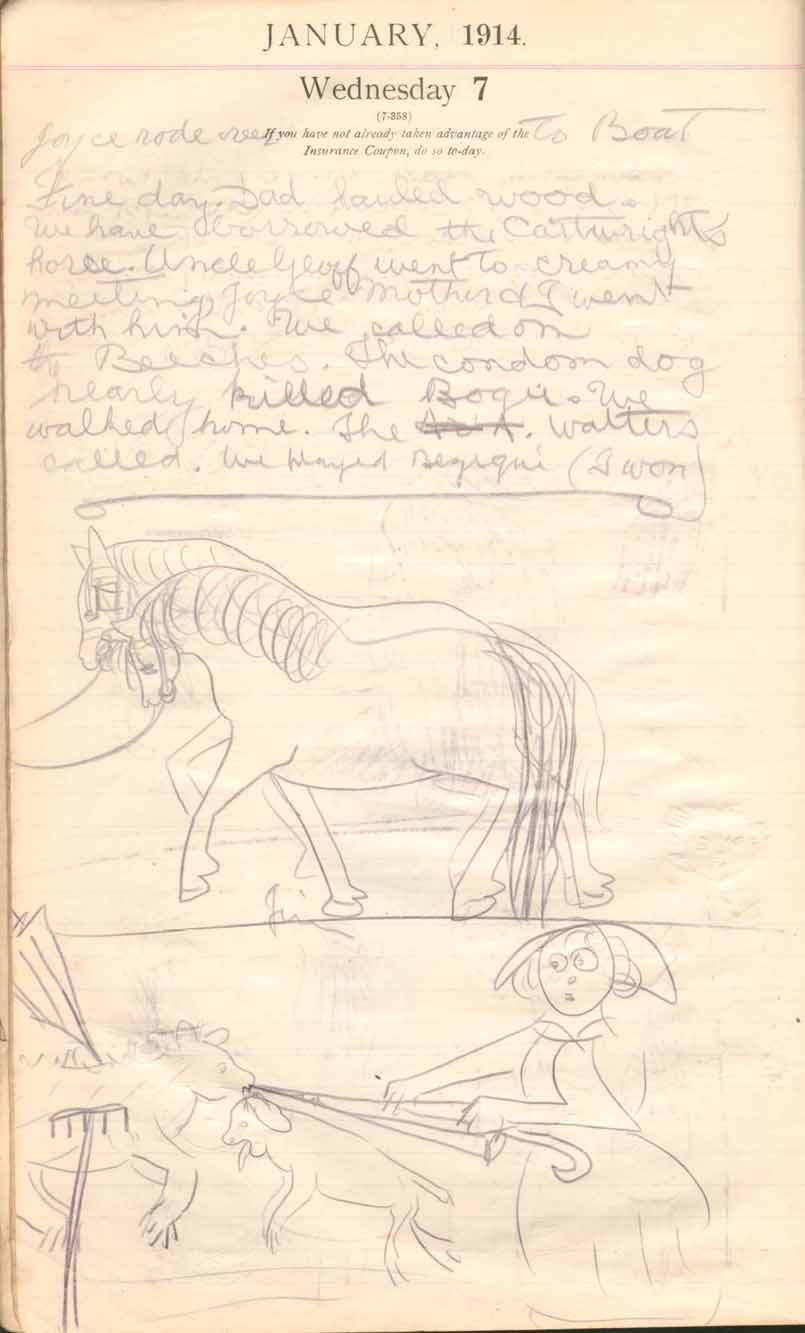 JANUARY, 1914.
Wednesday 7
(7-358)
If you have not already taken advantage of the
Insurance Coupon, do so to-day.
Joyce rode over to Boat
Fine day. Dad hauled wood.
We have borrowed the Cartwrights
horse. Uncle Geoff went to creamy
meeting, Joyce Mother & I went
with him. We called on
the Beeches. The condom dog
nearly killed Bogie. We
walked home. The Walters
called. We played (I won)
Jim